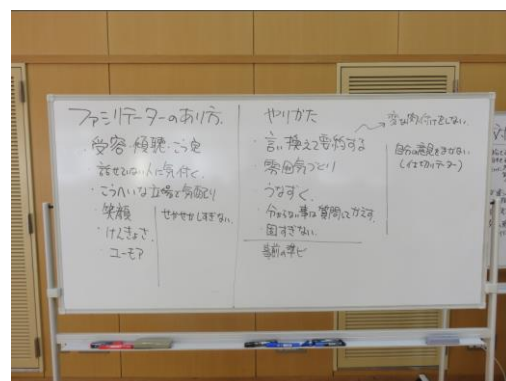 ファシリテーターのあり方
・受容・傾聴・こう定
話せていない人に気付く。
・こうへいな立場で気配り
・笑顔
・けんきょさ
・ユーモア
せかせかしすぎない。
やりかた
・言い換えて要約する
変な肉付けをしない。
・雰囲気づくり
うなずく。
・分からない事は質問してかえす。
・固すぎない。
事前の学ビ
自分の意見をまぜない
(イイ切リテーター)